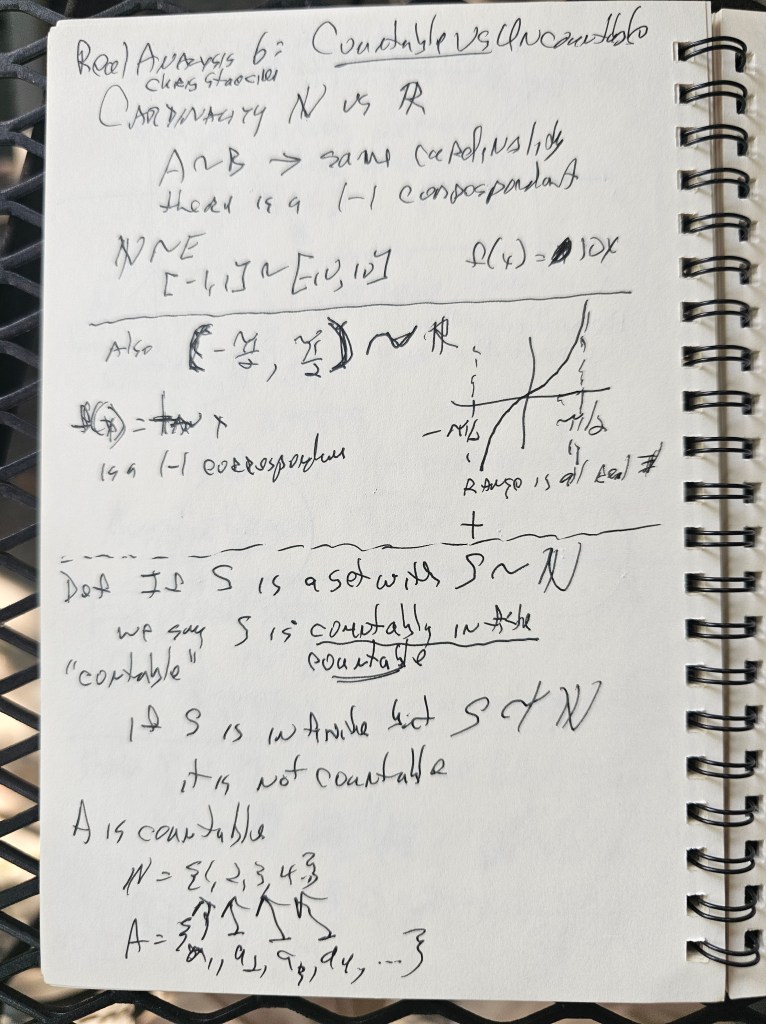 Real Analysis 6: Countable vs Uncountable
Chris Staecker
Cardinality ℕ vs ℝ
A ~ B → same cardinality
there is a 1-1 correspondant
ℕ ~ E
[-1, 1] ~ [-10, 10] f(x) = 10x
Also (-π/2, π/2) ~ ℝ
f(x) = tan x
is a 1-1 correspondence
-π/2 π/2
Range is all real #
Def If S is a set with S ~ ℕ
we say S is countably infinite
"contable" countable
If S is infinite but S ≁ ℕ
it is not countable
A is countable
ℕ = {1, 2, 3, 4..}
A = {a₁, a₂, a₃, a₄, ...}